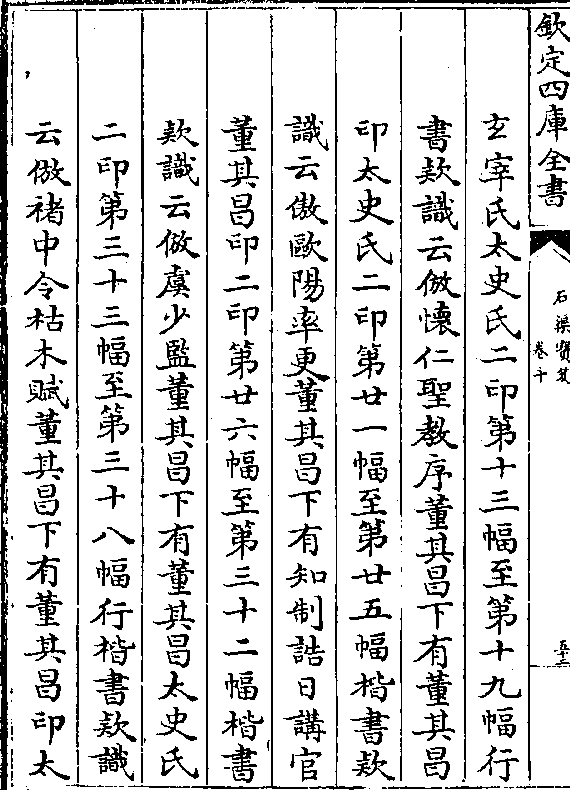 欽定四庫全書
石渠寳笈
卷十
五十三
玄宰氏太史氏二印第十三幅至第十九幅行
書欵識云倣懐仁聖教序董其昌下有董其昌
印太史氏二印第廿一幅至第廿五幅楷書欵
識云倣歐陽率更董其昌下有知制誥日講官
董其昌印二印第廿六幅至第三十二幅楷書
欵識云倣虞少監董其昌下有董其昌太史氏
二印第三十三幅至第三十八幅行楷書欵識
云倣褚中令枯木賦董其昌下有董其昌印太